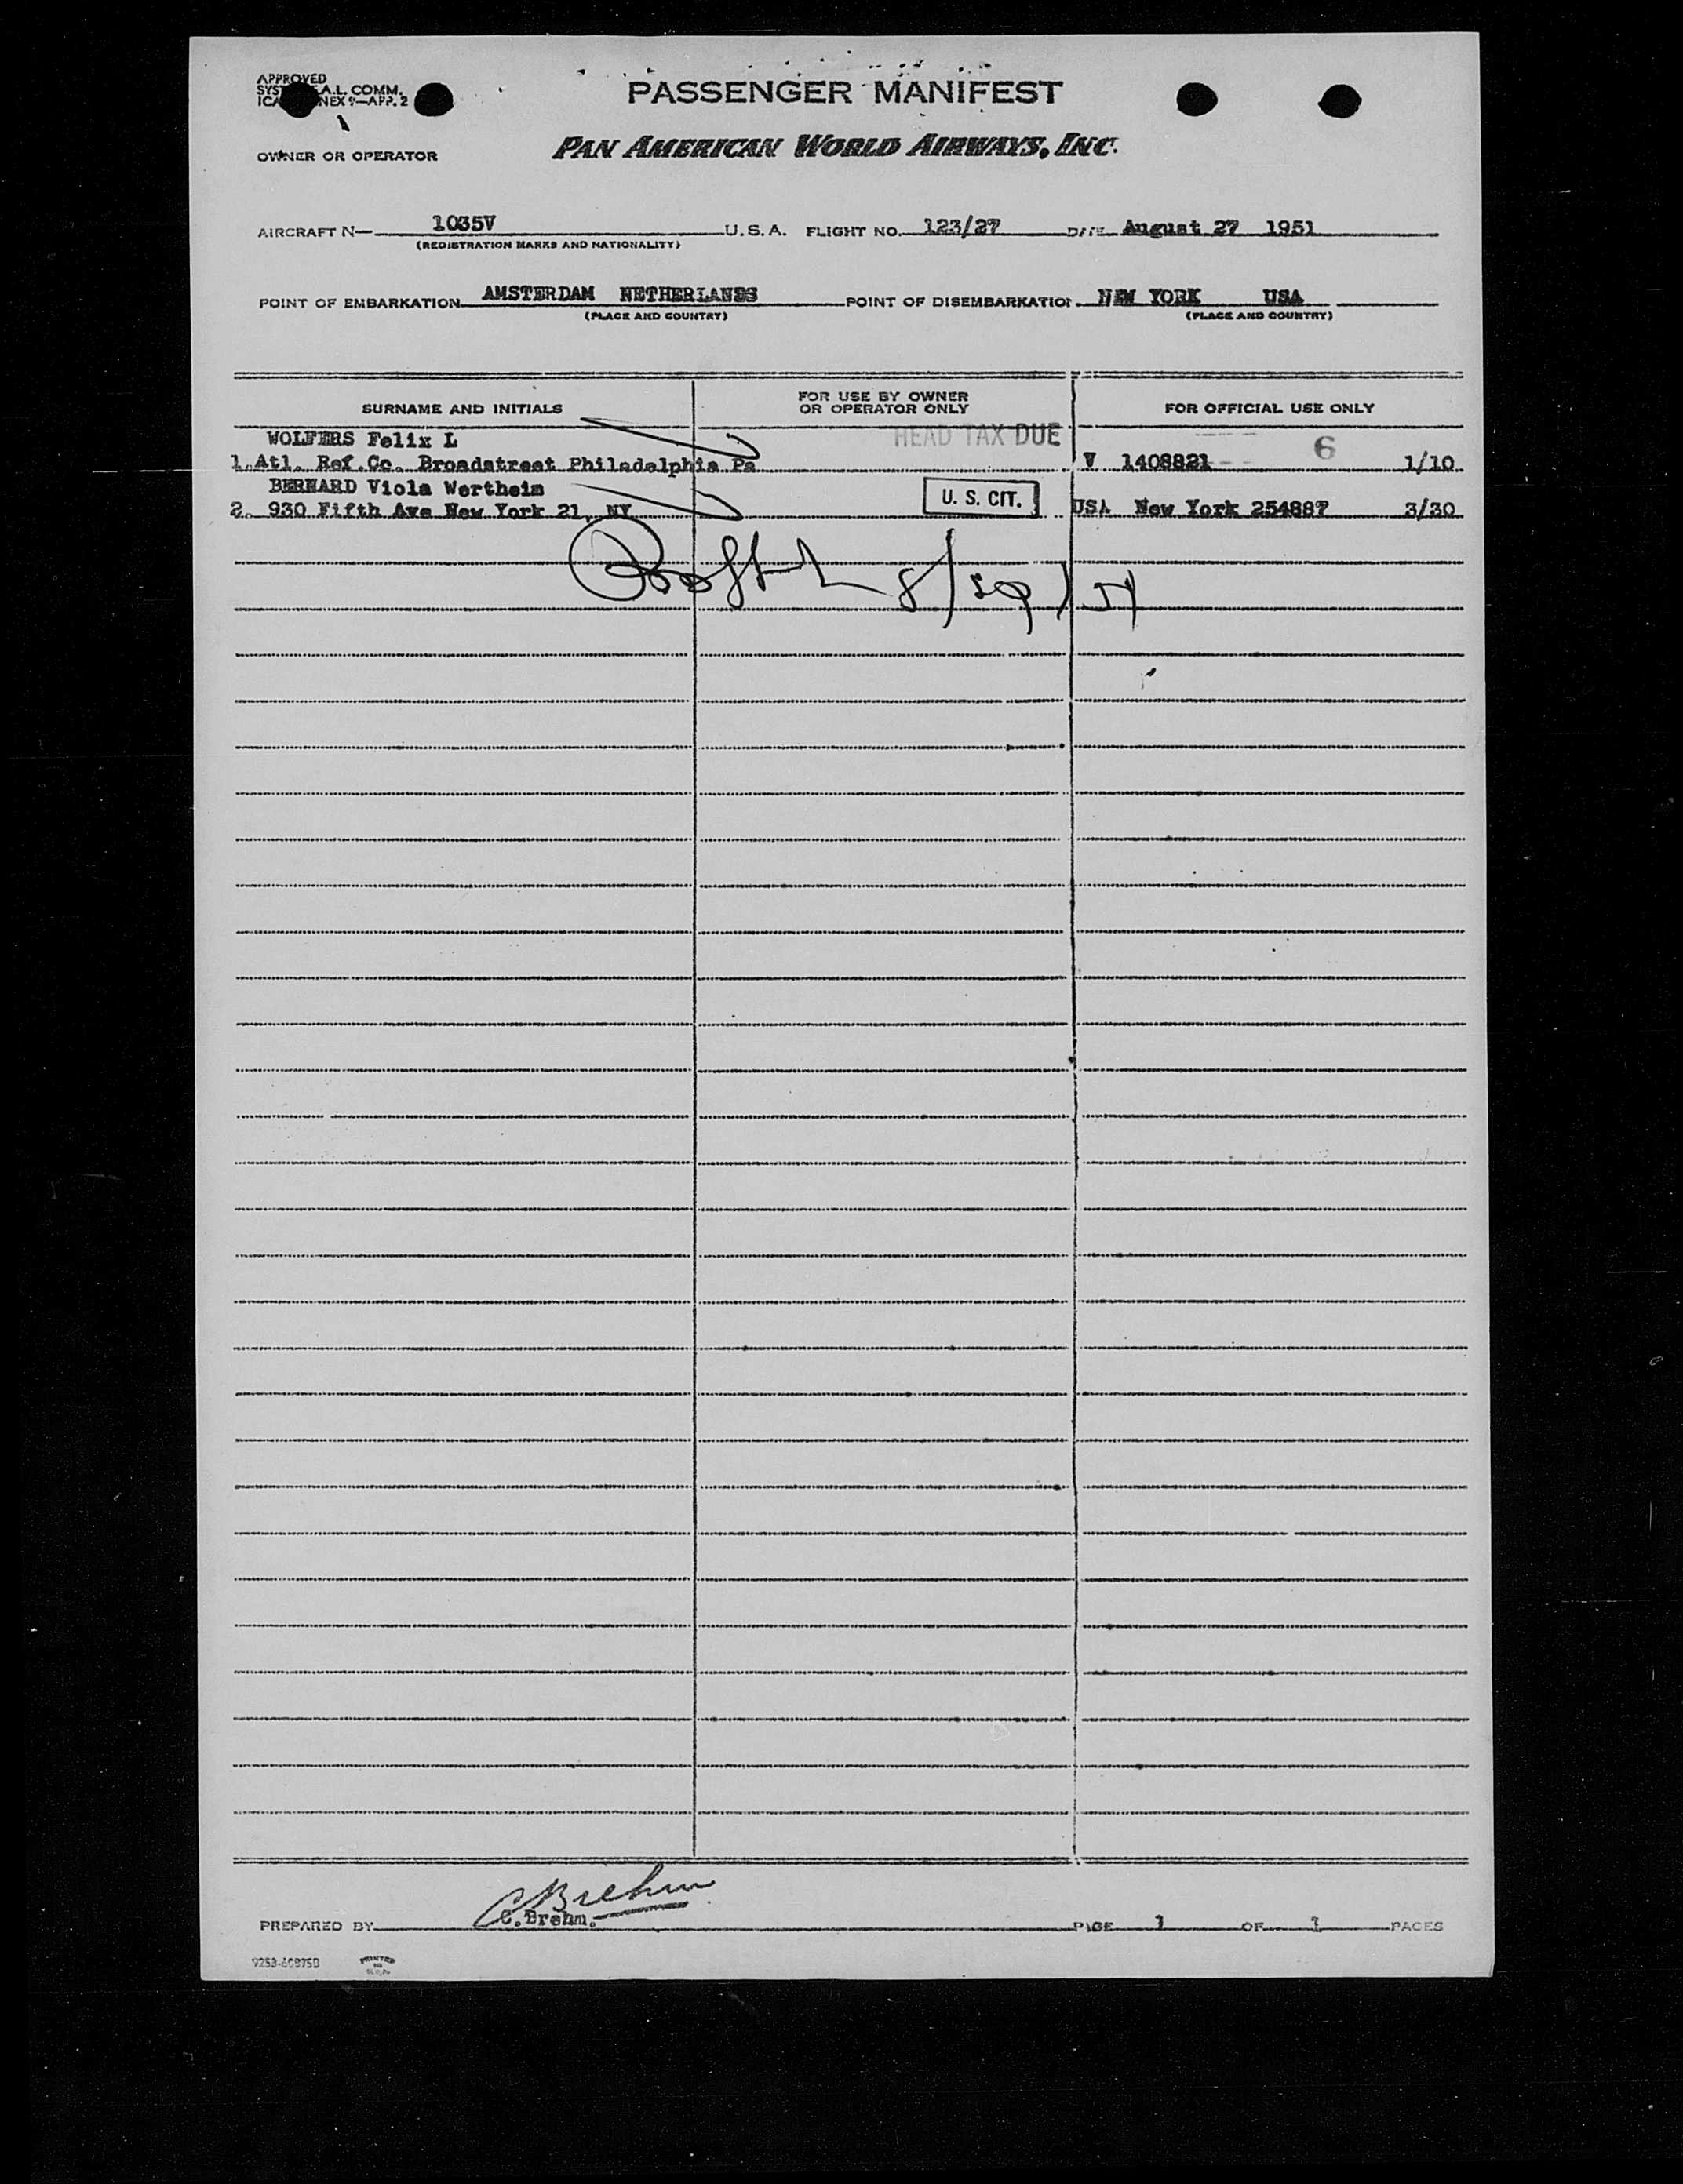 APPROVED
A.L. COMM.
PASSENGER MANIFEST
OWNER OR OPERATOR PAN AMERICAN WORLD AIRWAYS, INC.
AIRCRAFT N— 1035V U.S.A. FLIGHT NO. 123/27 DATE August 27 1951
(REGISTRATION MARKS AND NATIONALITY)
POINT OF EMBARKATION AMSTERDAM NETHERLANDS POINT OF DISEMBARKATION NEW YORK USA
(PLACE AND COUNTRY) (PLACE AND COUNTRY)
SURNAME AND INITIALS FOR USE BY OWNER OR OPERATOR ONLY FOR OFFICIAL USE ONLY
WOLFERS Felix L HEAD TAX DUE 6
1. Atl. Ref. Co. Broadstreet Philadelphia Pa V 1408821 1/10
BERNARD Viola Wertheim
2. 930 Fifth Ave New York 21, NY U. S. CIT. USA New York 254887 3/30
C Brehm
PREPARED BY C. Brehm. PAGE 1 OF 1 PAGES
PRINTED